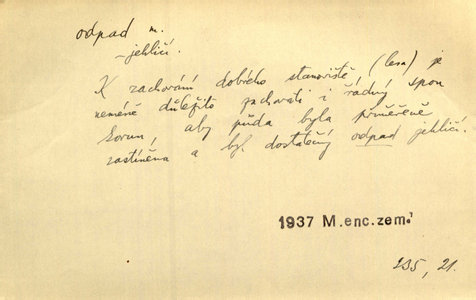 odpad m.
-jehličí.
K zachování dobrého stanoviště (lesa) je
neméně důležito zachovati i řádný spon
korun, aby půda byla průměrně
zastíněna a byl dostatečný odpad jehličí.
1937 M.enc.zem.
235, 21.